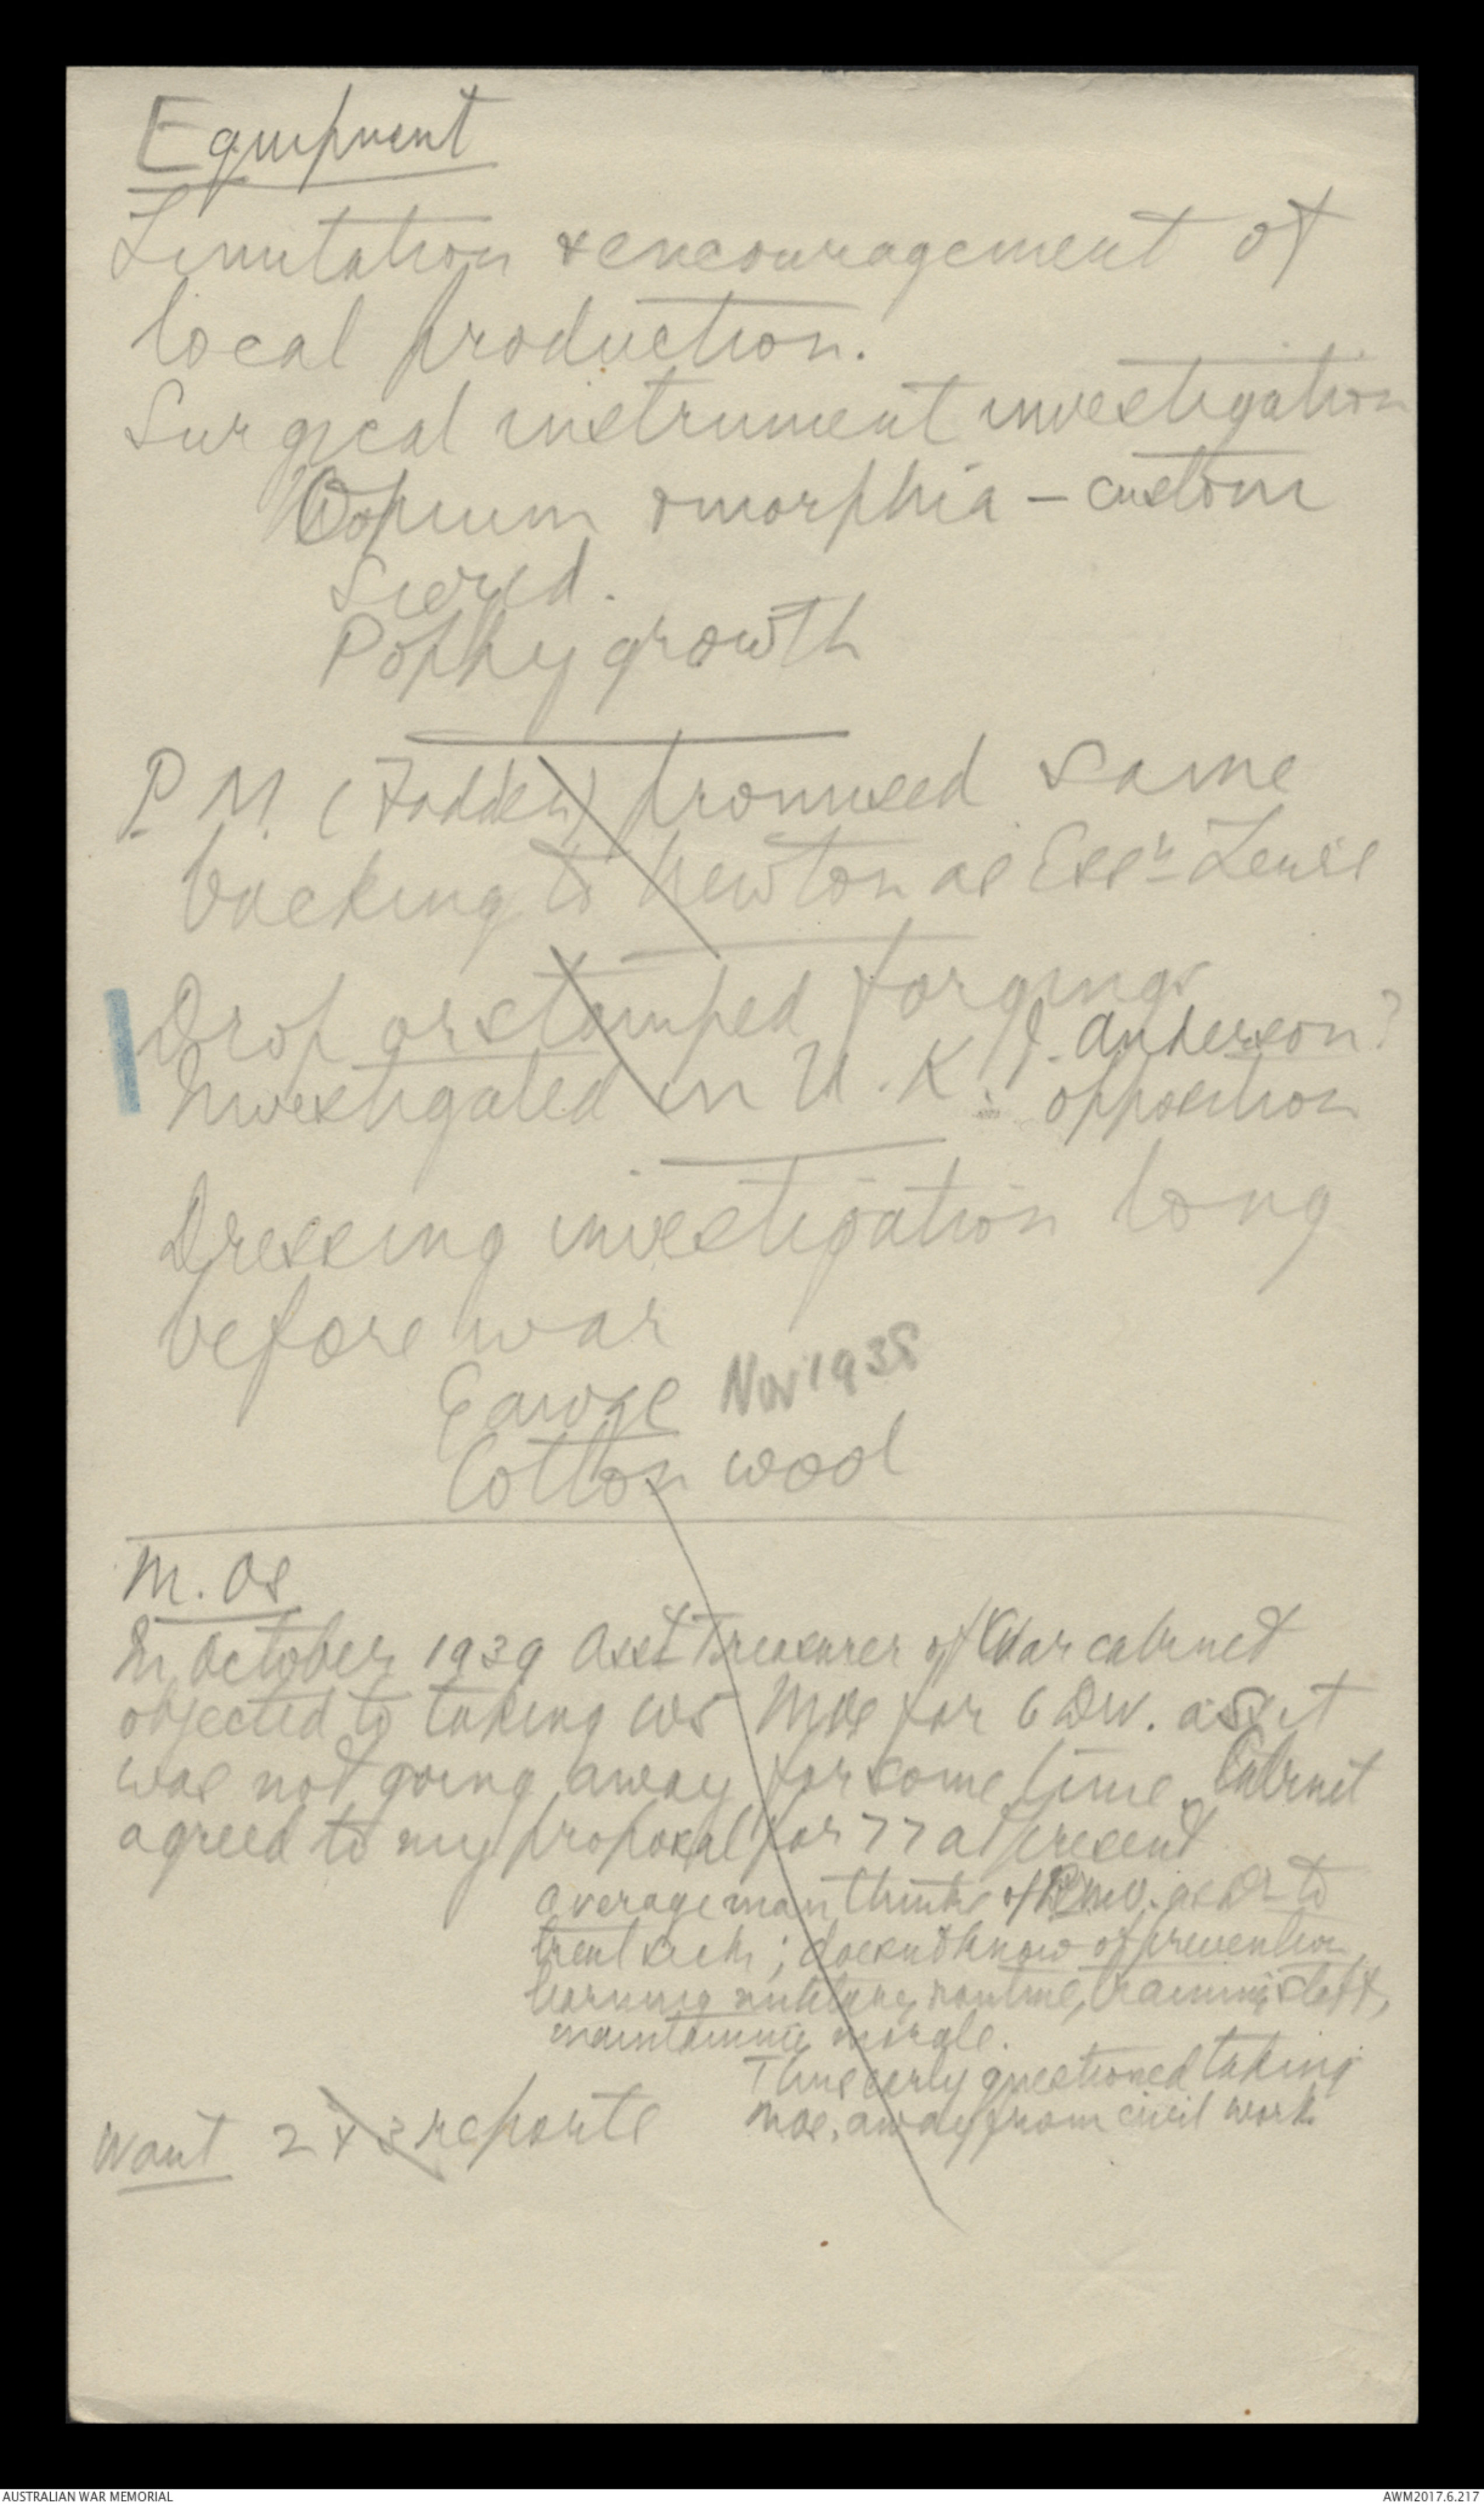 Equipment
Limitation & encouragement of
local production.
Surgical instrument investigation
Opium & morphia - custom
Poppy growth
P.M. (Fadden) promised same
backing to Newton as Essn Lewis
Drop or stamped forgings
J. Anderson?
Investigated in U.K. opposition
Dressing investigation long
before war
Gauze Nov 1938
Cotton wool
M. Os
In October 1939 Asst Treasurer of War cabinet
objected to taking MOs for 6 Div. as it
was not going away for some time. Cabinet
agreed to my proposal for 77 at present
average man thinks of R.M.O. as Dr to
treat sick; doesnt know of prevention,
learning military routine, training staff,
maintaining morale.
Thus early questioned taking
MOs. away from civil work
Want 2 & 3 reports
AUSTRALIAN WAR MEMORIAL
AWM2017.6.217